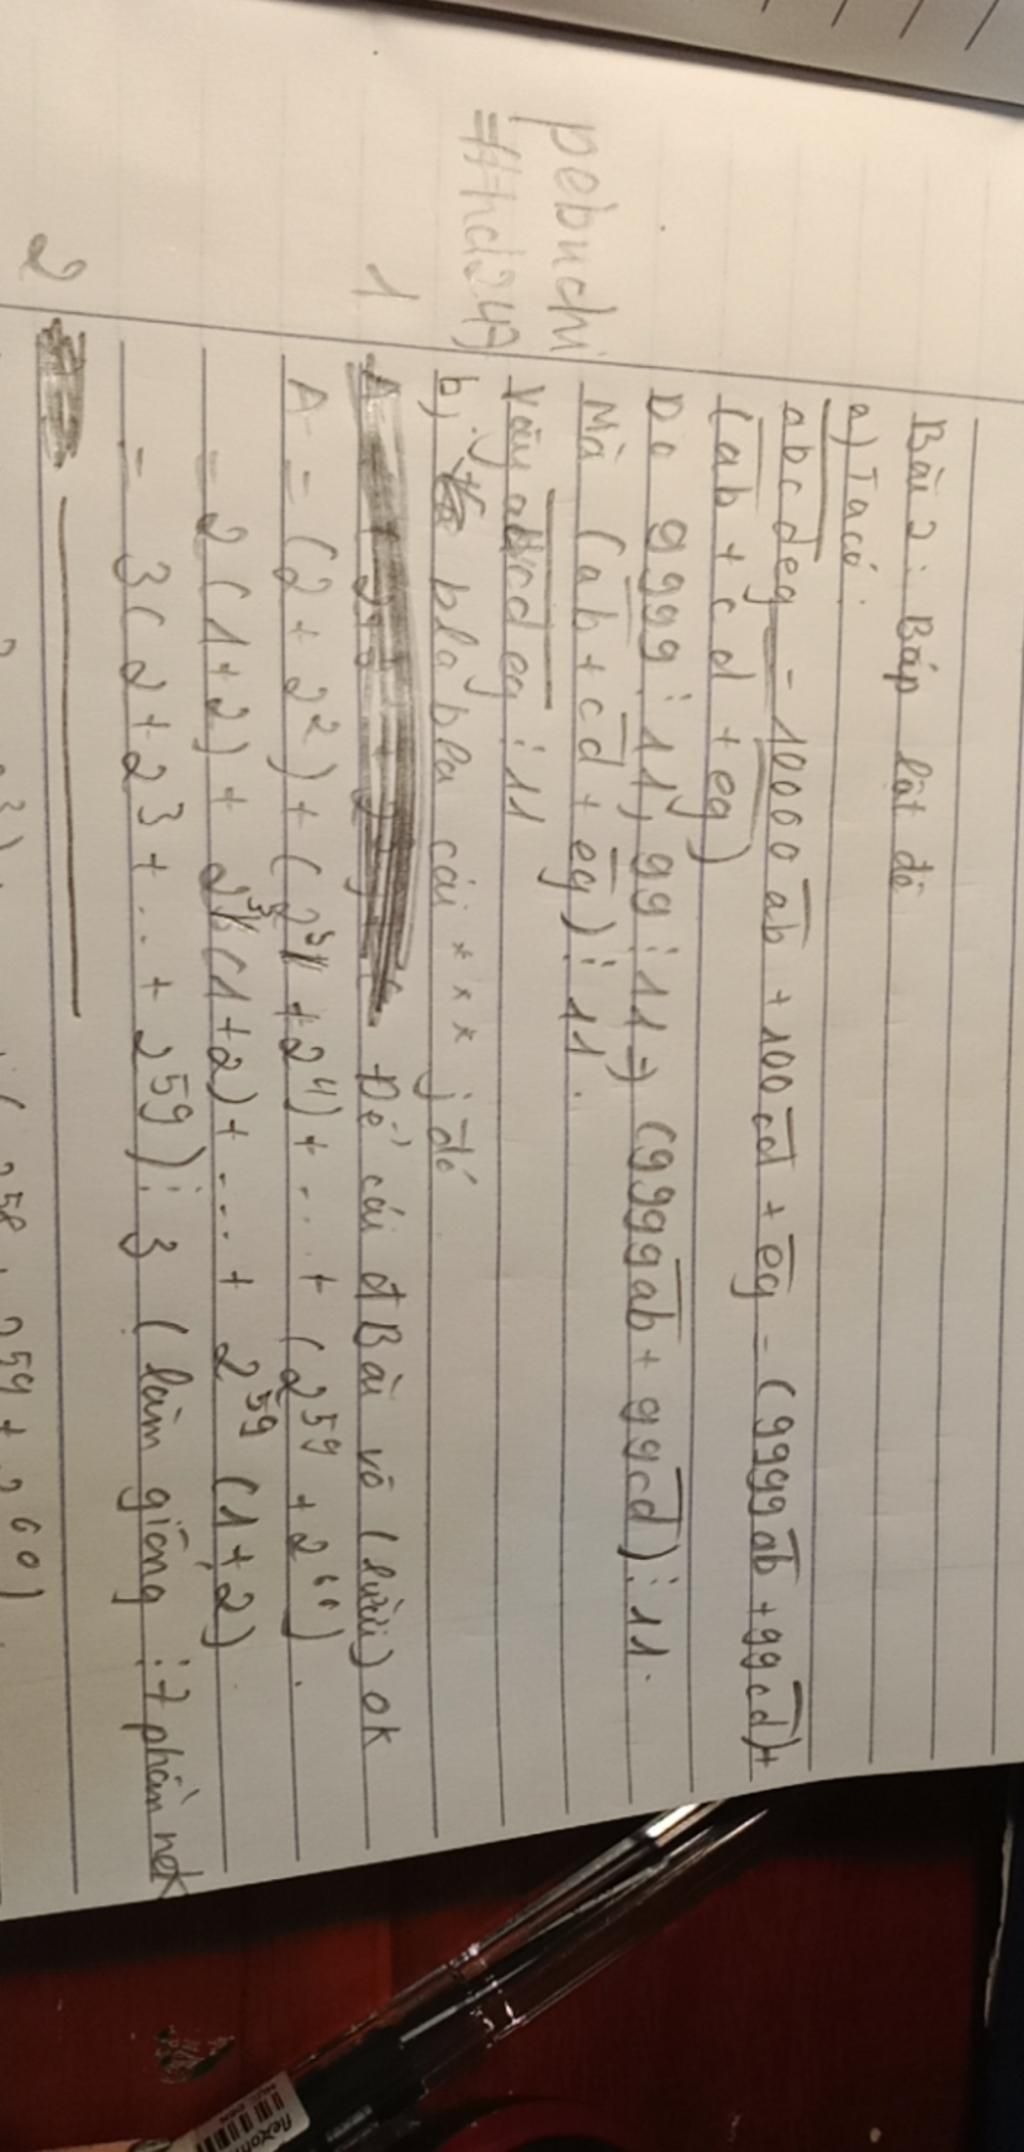 pebuchi
#Hnd247
Bài 2: Báp lật đổ
a) Ta có:
abcdeg = 10000ab + 100cd + eg = (9999ab + 99cd) +
(ab + cd + eg)
Do 9999 ⋮ 11, 99 ⋮ 11 => (9999ab + 99cd) ⋮ 11.
Mà (ab + cd + eg) ⋮ 11.
Vậy abcdeg ⋮ 11
b) bla bla cái *** j đó
1 Để cái đ Bài vô (lười) ok
A = (2 + 2²) + (2³ + 2⁴) + ... + (2⁵⁹ + 2⁶⁰).
= 2(1+2) + 2³(1+2) + ... + 2⁵⁹(1+2)
= 3(2 + 2³ + ... + 2⁵⁹) ⋮ 3 (làm giống ⋮ 7 phần nek
2
2⁵⁸ + 2⁵⁹ + 2⁶⁰)